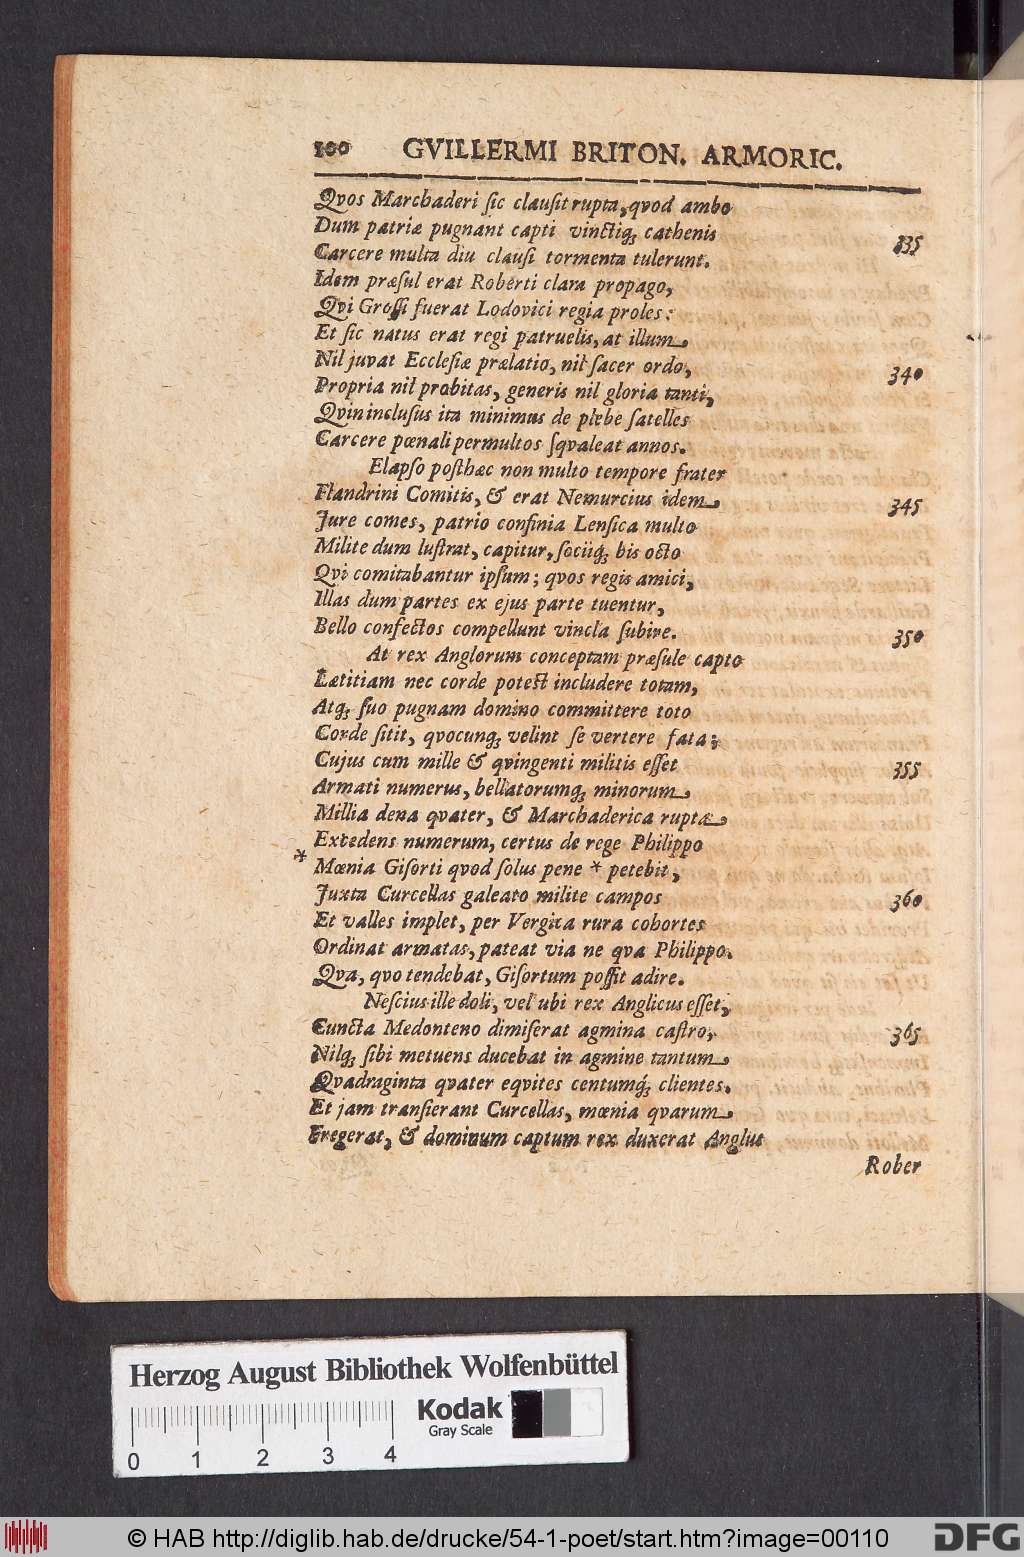 100 GVILLERMI BRITON. ARMORIC.
Qvos Marchaderi ſic clauſit rupta, qvod ambo
Dum patriæ pugnant capti vinctiq́; cathenis 335
Carcere multa diu clauſi tormenta tulerunt.
Idem præſul erat Roberti clara propago,
Qvi Groſſi fuerat Lodovici regia proles:
Et ſic natus erat regi patruelis, at illum
Nil juvat Eccleſiæ prælatio, nil ſacer ordo, 340
Propria nil probitas, generis nil gloria tanti,
Qvin incluſus ita minimus de plebe ſatelles
Carcere pœnali permultos ſqvaleat annos.
Elapſo poſthæc non multo tempore frater
Flandrini Comitis, & erat Nemurcius idem 345
Jure comes, patrio confinia Lenſica multo
Milite dum luſtrat, capitur, ſociiq́; bis octo
Qvi comitabantur ipſum; qvos regis amici,
Illas dum partes ex ejus parte tuentur,
Bello confectos compellunt vincla ſubire. 350
At rex Anglorum conceptam præſule capto
Lætitiam nec corde poteſt includere totam,
Atq́; ſuo pugnam domino committere toto
Corde ſitit, qvocunq́; velint ſe vertere fata;
Cujus cum mille & qvingenti militis eſſet 355
Armati numerus, bellatorumq́; minorum
Millia dena qvater, & Marchaderica ruptæ
Excedens numerum, certus de rege Philippo
* Mœnia Giſorti qvod ſolus pene * petebit,
Juxta Curcellas galeato milite campos 360
Et valles implet, per Vergica rura cohortes
Ordinat armatas, pateat via ne qva Philippo.
Qva, qvo tendebat, Giſortum poſſit adire.
Neſcius ille doli, vel ubi rex Anglicus eſſet,
Cuncta Medonteno dimiſerat agmina caſtro, 365
Nilq́; ſibi metuens ducebat in agmine tantum
Qvadraginta qvater eqvites centumq́; clientes.
Et jam tranſierant Curcellas, mœnia qvarum
Fregerat, & dominum captum rex duxerat Anglus
Rober
Herzog August Bibliothek Wolfenbüttel
Kodak
Gray Scale
0 1 2 3 4
© HAB http://diglib.hab.de/drucke/54-1-poet/start.htm?image=00110
DFG